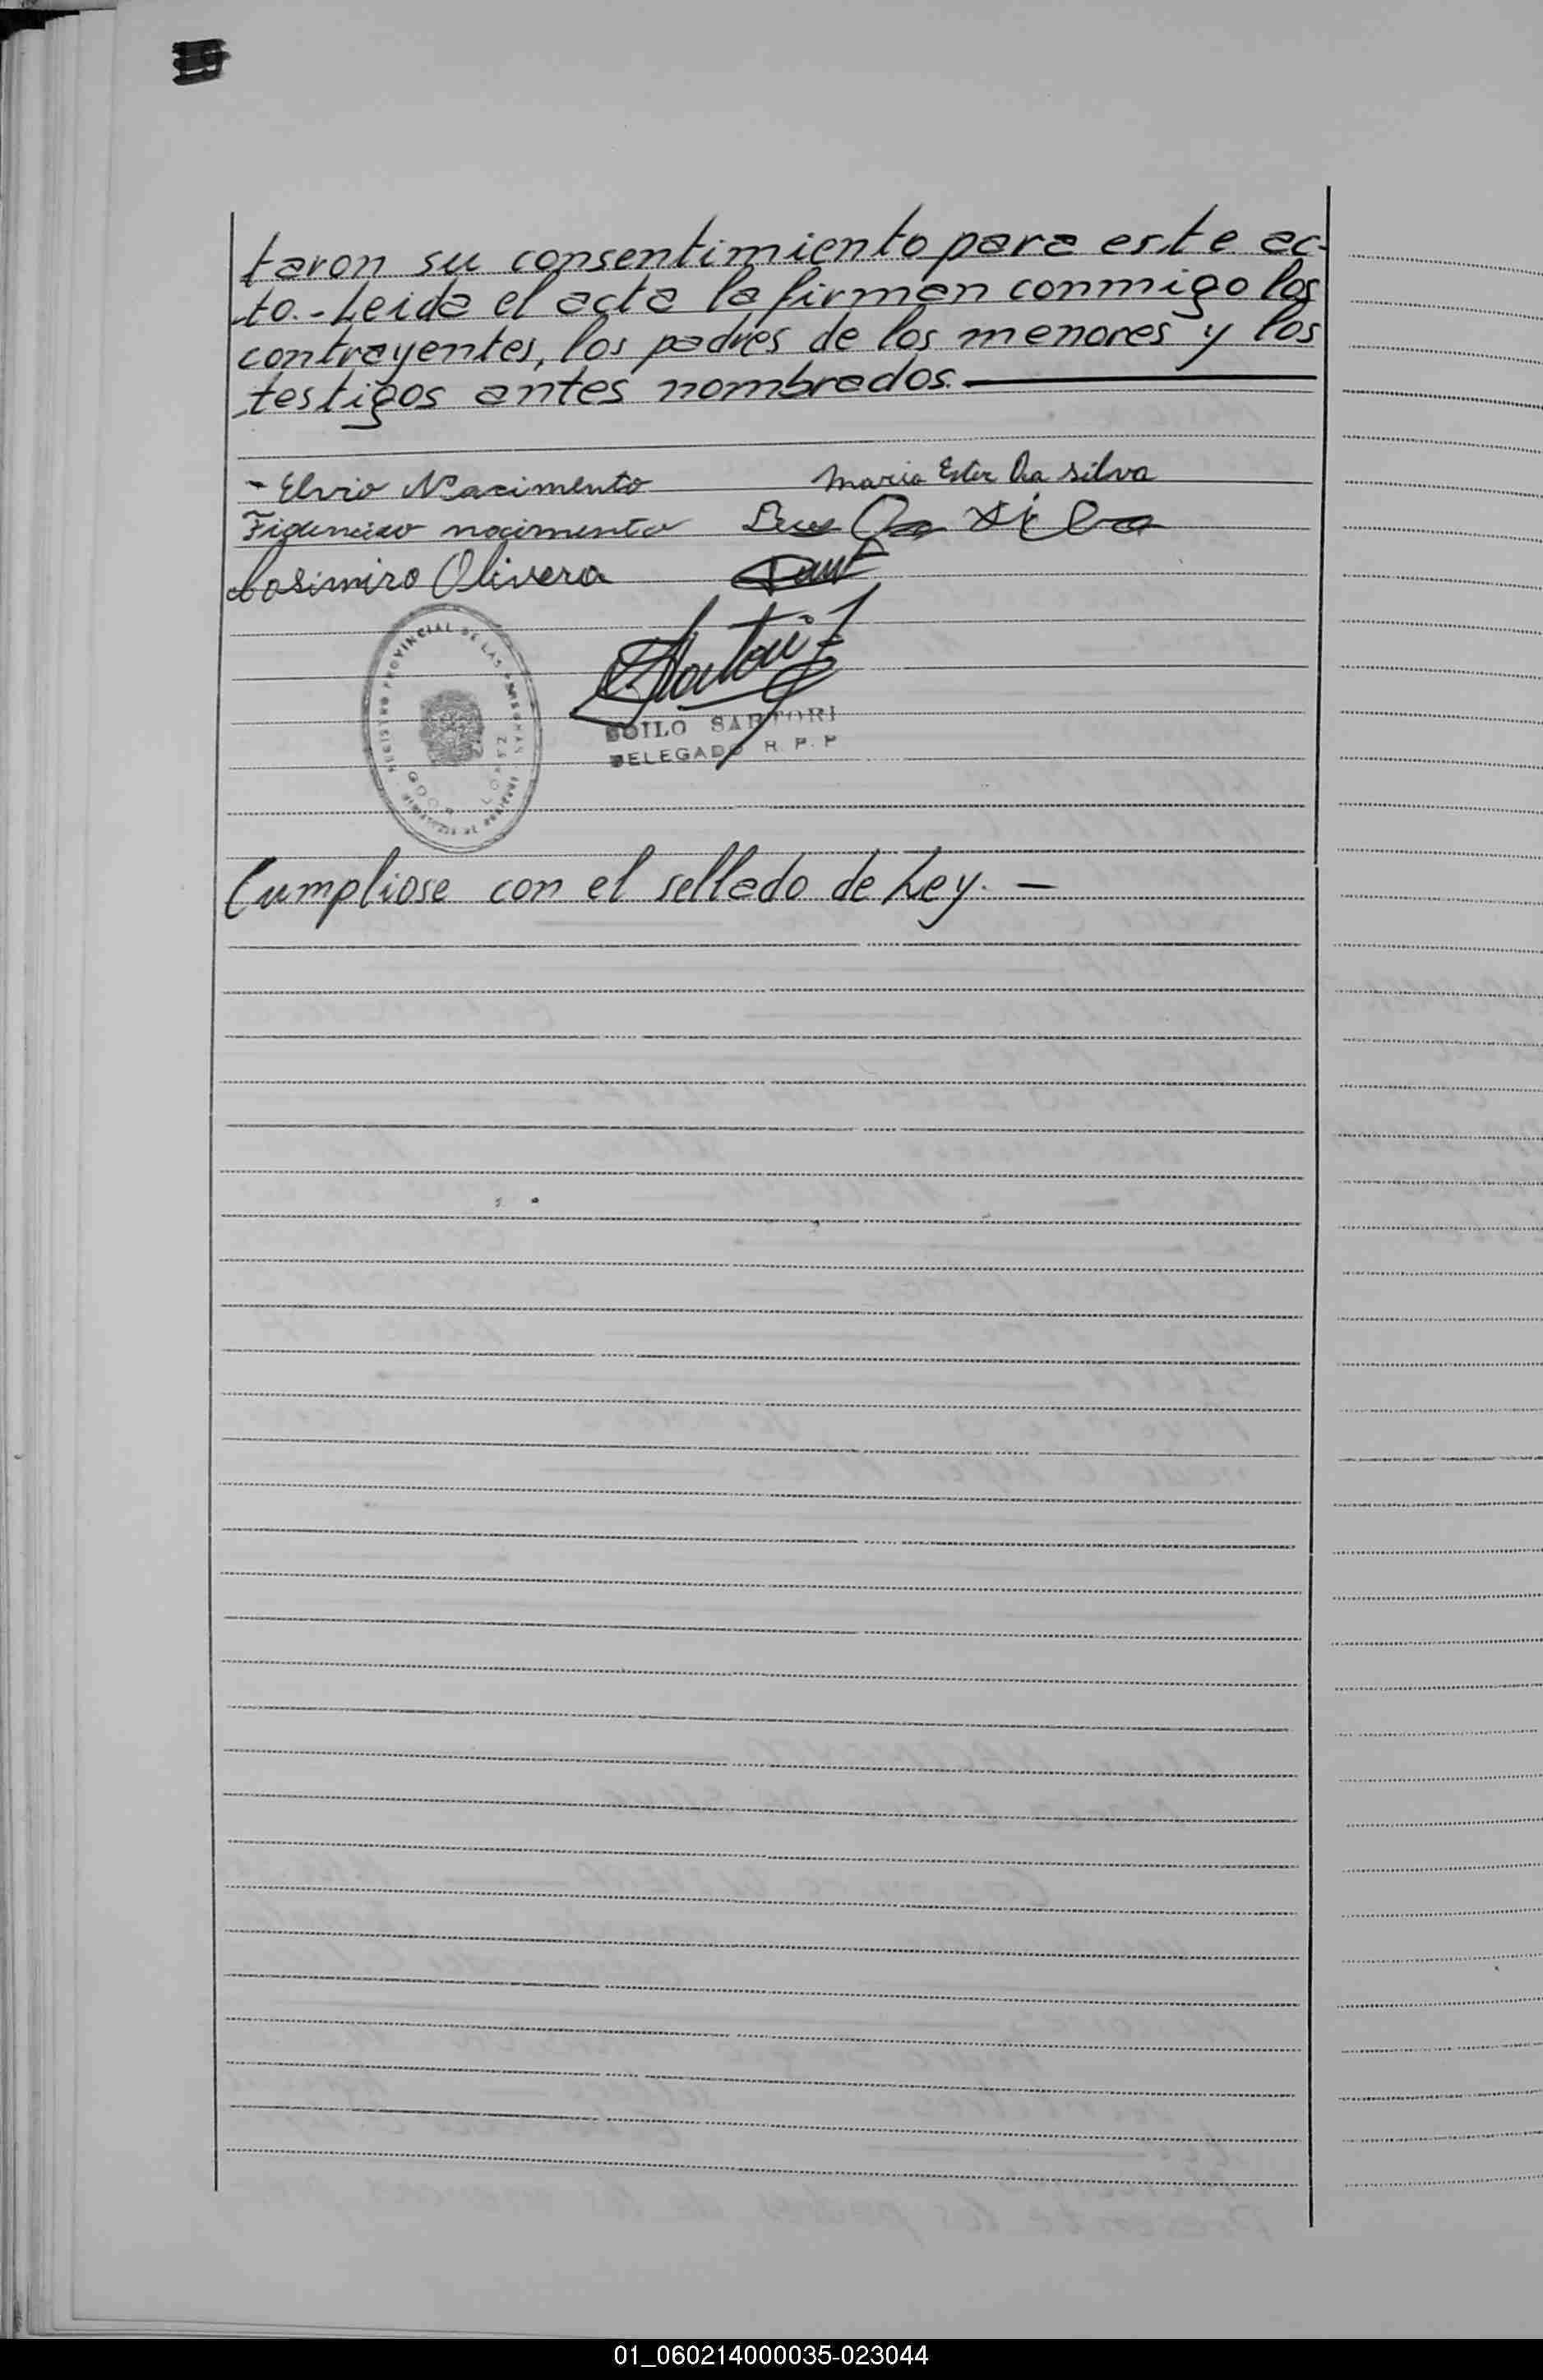 19
taron su consentimiento para este ac-
to.- Leida el acta la firman conmigo los
contrayentes, los padres de los menores y los
testigos antes nombrados.—
- Elvio Nacimento Maria Ester Da Silva
nacimento Da Silva
Casimiro Olivera
REGISTRO PROVINCIAL DE LAS PERSONAS
Sartori
ZOILO SARTORI
DELEGADO R. P. P
Cumpliose con el sellado de Ley. —
01_060214000035-023044